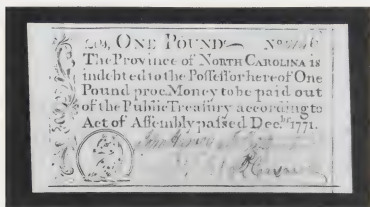 ONE POUND No
The Province of NORTH CAROLINA is
indebted to the Poſſeſſor hereof One
Pound proc. Money to be paid out
of the Public Treaſury according to
Act of Aſſembly paſſed Decbr. 1771.
John